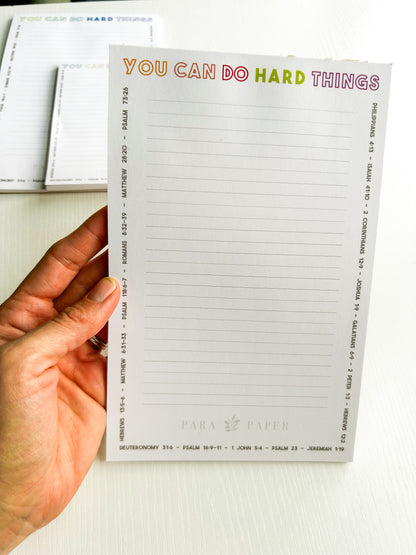 YOU CAN DO HARD THINGS
YOU CAN DO HARD THINGS
HEBREWS 13:5-6 - MATTHEW 6:31-33 - PSALM 118:6-7 - ROMANS 8:32-39 - MATTHEW 28:20 - PSALM 73:26
PHILIPPIANS 4:13 - ISAIAH 41:10 - 2 CORINTHIANS 12:9 - JOSHUA 1:9 - GALATIANS 6:9 - 2 PETER 1:3 - HEBREWS 12:2
PARA PAPER
DEUTERONOMY 31:6 - PSALM 16:9-11 - 1 JOHN 5:4 - PSALM 23 - JEREMIAH 1:19